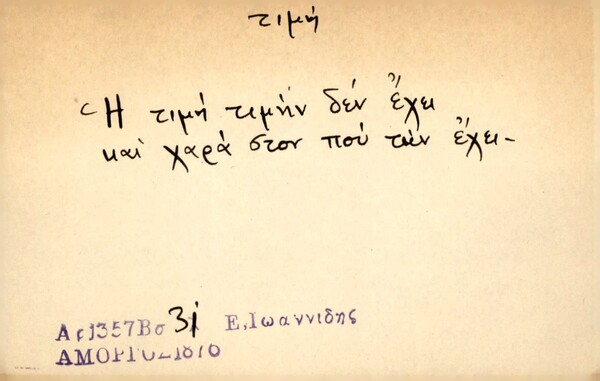 τιμή
Ἡ τιμή τιμήν δέν ἔχει
καί χαρά στον πού τήν ἔχει-
31 Ε.Ιωαννιδης
ΑΜΟΡΓΟΣ 1876